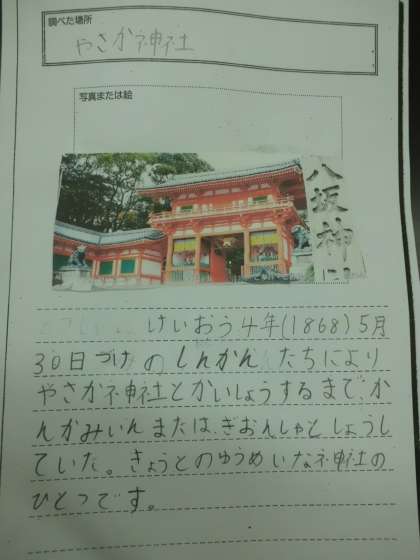 調べた場所
やさか神社
写真または絵
八坂神社
けいおう4年(1868)5月
30日づけのしんかんたちにより
やさか神社とかいしょうするまで、か
んかみいんまたは、ぎおんしゃとしょうし
ていた。きょうとのゆうめいな神社の
ひとつです。